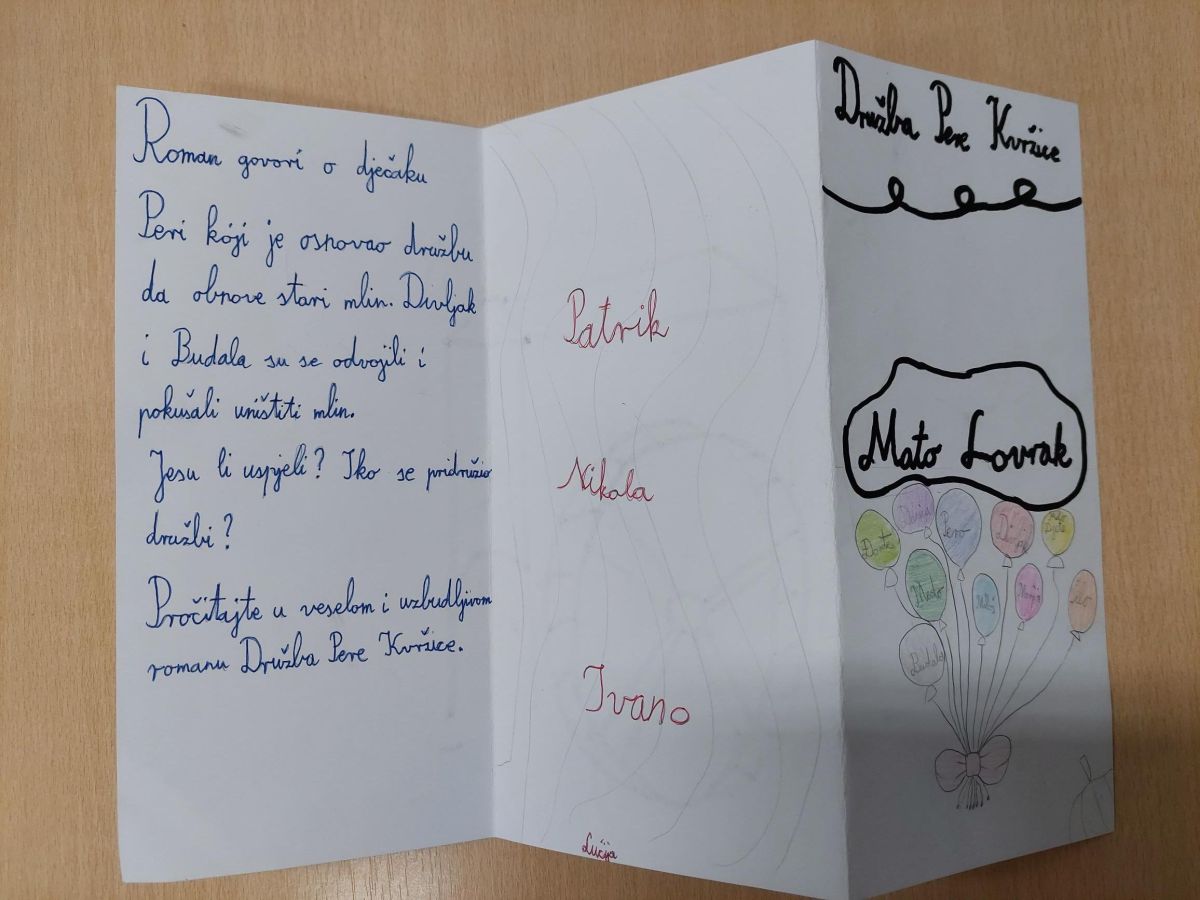 Roman govori o dječaku
Peri koji je osnovao družbu
da obnove stari mlin. Divljak
i Budala su se odvojili i
pokušali uništiti mlin.
Jesu li uspjeli? Tko se pridružio
družbi?
Pročitajte u veselom i uzbudljivom
romanu Družba Pere Kvržice.
Patrik
Nikola
Ivano
Lucija
Družba Pere Kvržice
Mato Lovrak
Pero
Budala